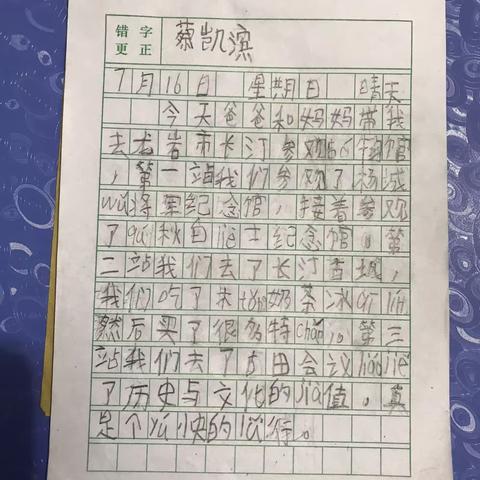 错字更正
蔡凯滨
7月16日 星期日 晴天
今天爸爸和妈妈带我
去龙岩市长汀参观bó物馆
,第一站我们参观了杨成
wǔ将军纪念馆,接着参观
了qú秋白liè士纪念馆。第
二站我们去了长汀古城,
我们吃了奶茶冰qí lín
然后买了很多特chǎn。第三
站我们去了古田会议liǎo jiě
了历史与文化的jià值。真
是个愉快的lǚ行。